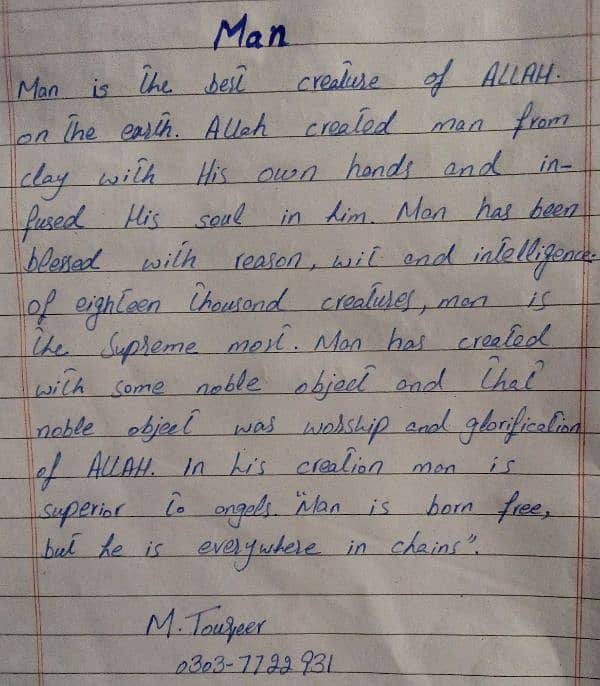 Man
Man is the best creature of ALLAH.
on the earth. Allah created man from
clay with His own hands and in-
fused His soul in him. Man has been
blessed with reason, wit and intelligence.
of eighteen thousand creatures, man is
the Supreme most. Man has created
with some noble object and that
noble object was worship and glorification
of ALLAH. In his creation man is
superior to angels. "Man is born free,
but he is everywhere in chains".
M. Touqeer
0303-7722931